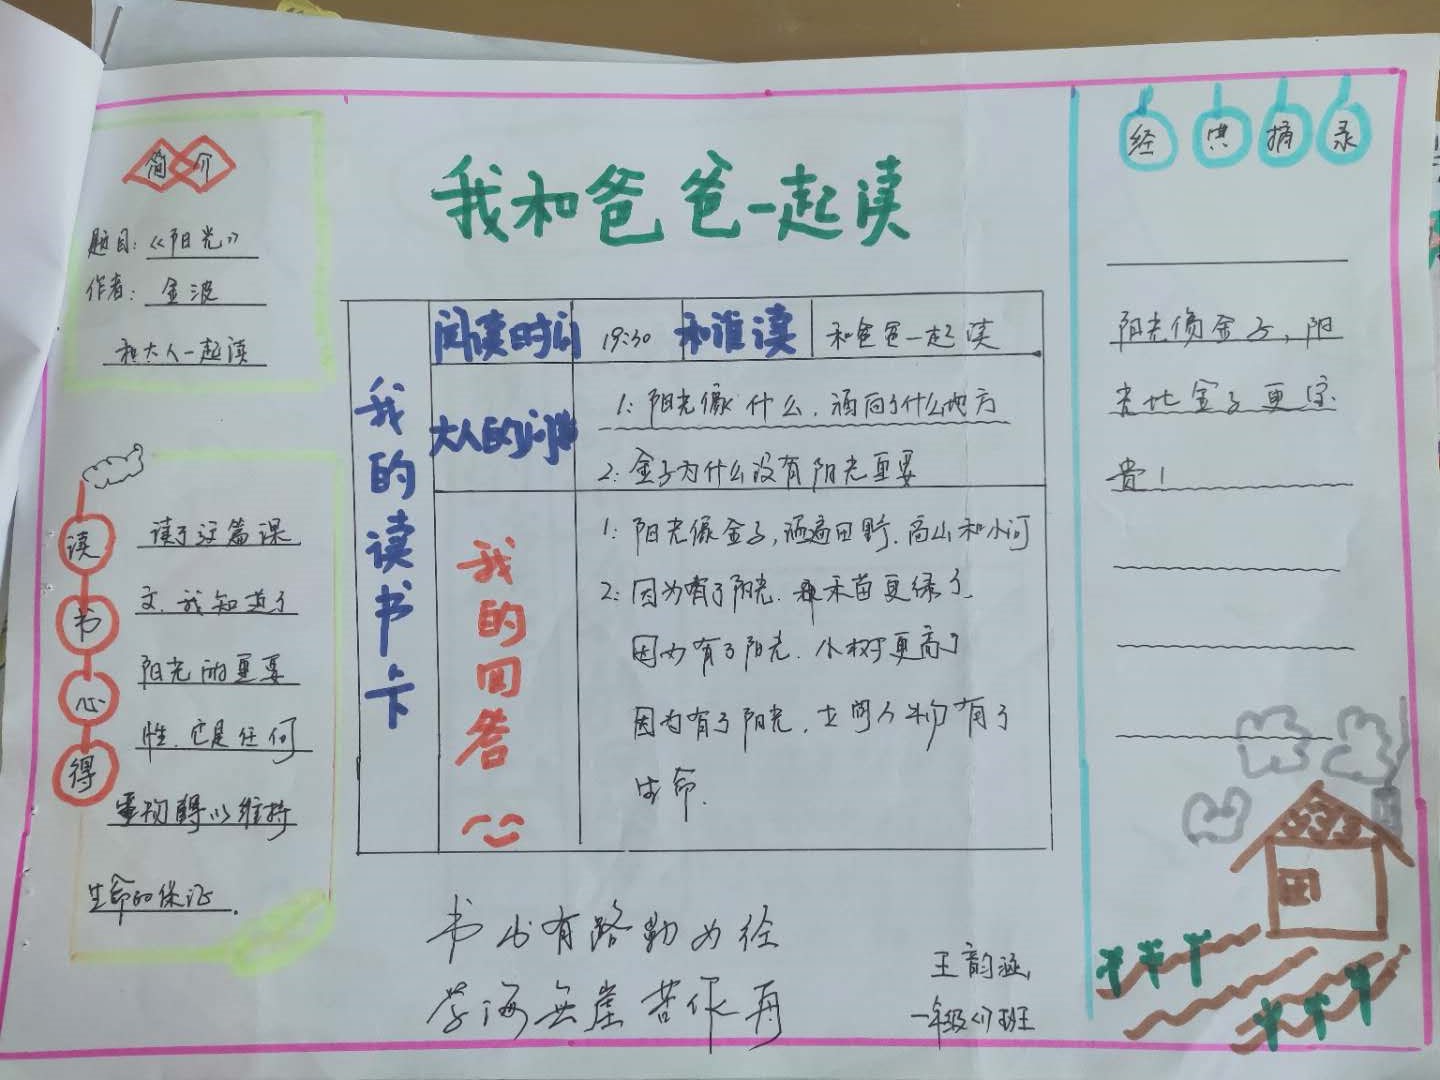 我和爸爸一起读
简介
题目：《阳光》
作者：金波
和大人一起读
读书心得
读了这篇课
文，我知道了
阳光的重要
性，它是任何
事物得以维持
生命的保证.
我的读书卡
阅读时间
19:30
和谁读
和爸爸一起读
大人的问题
1：阳光像什么，洒向了什么地方
2：金子为什么没有阳光重要
我的回答
1：阳光像金子，洒遍田野、高山和小河
2：因为有了阳光，禾苗更绿了
因为有了阳光，小树更高了
因为有了阳光，世间人物有了
生命.
经典摘录
阳光像金子，阳
光比金子更宝
贵！
书山有路勤为径
学海无崖苦作舟
王韵涵
一年级(1)班